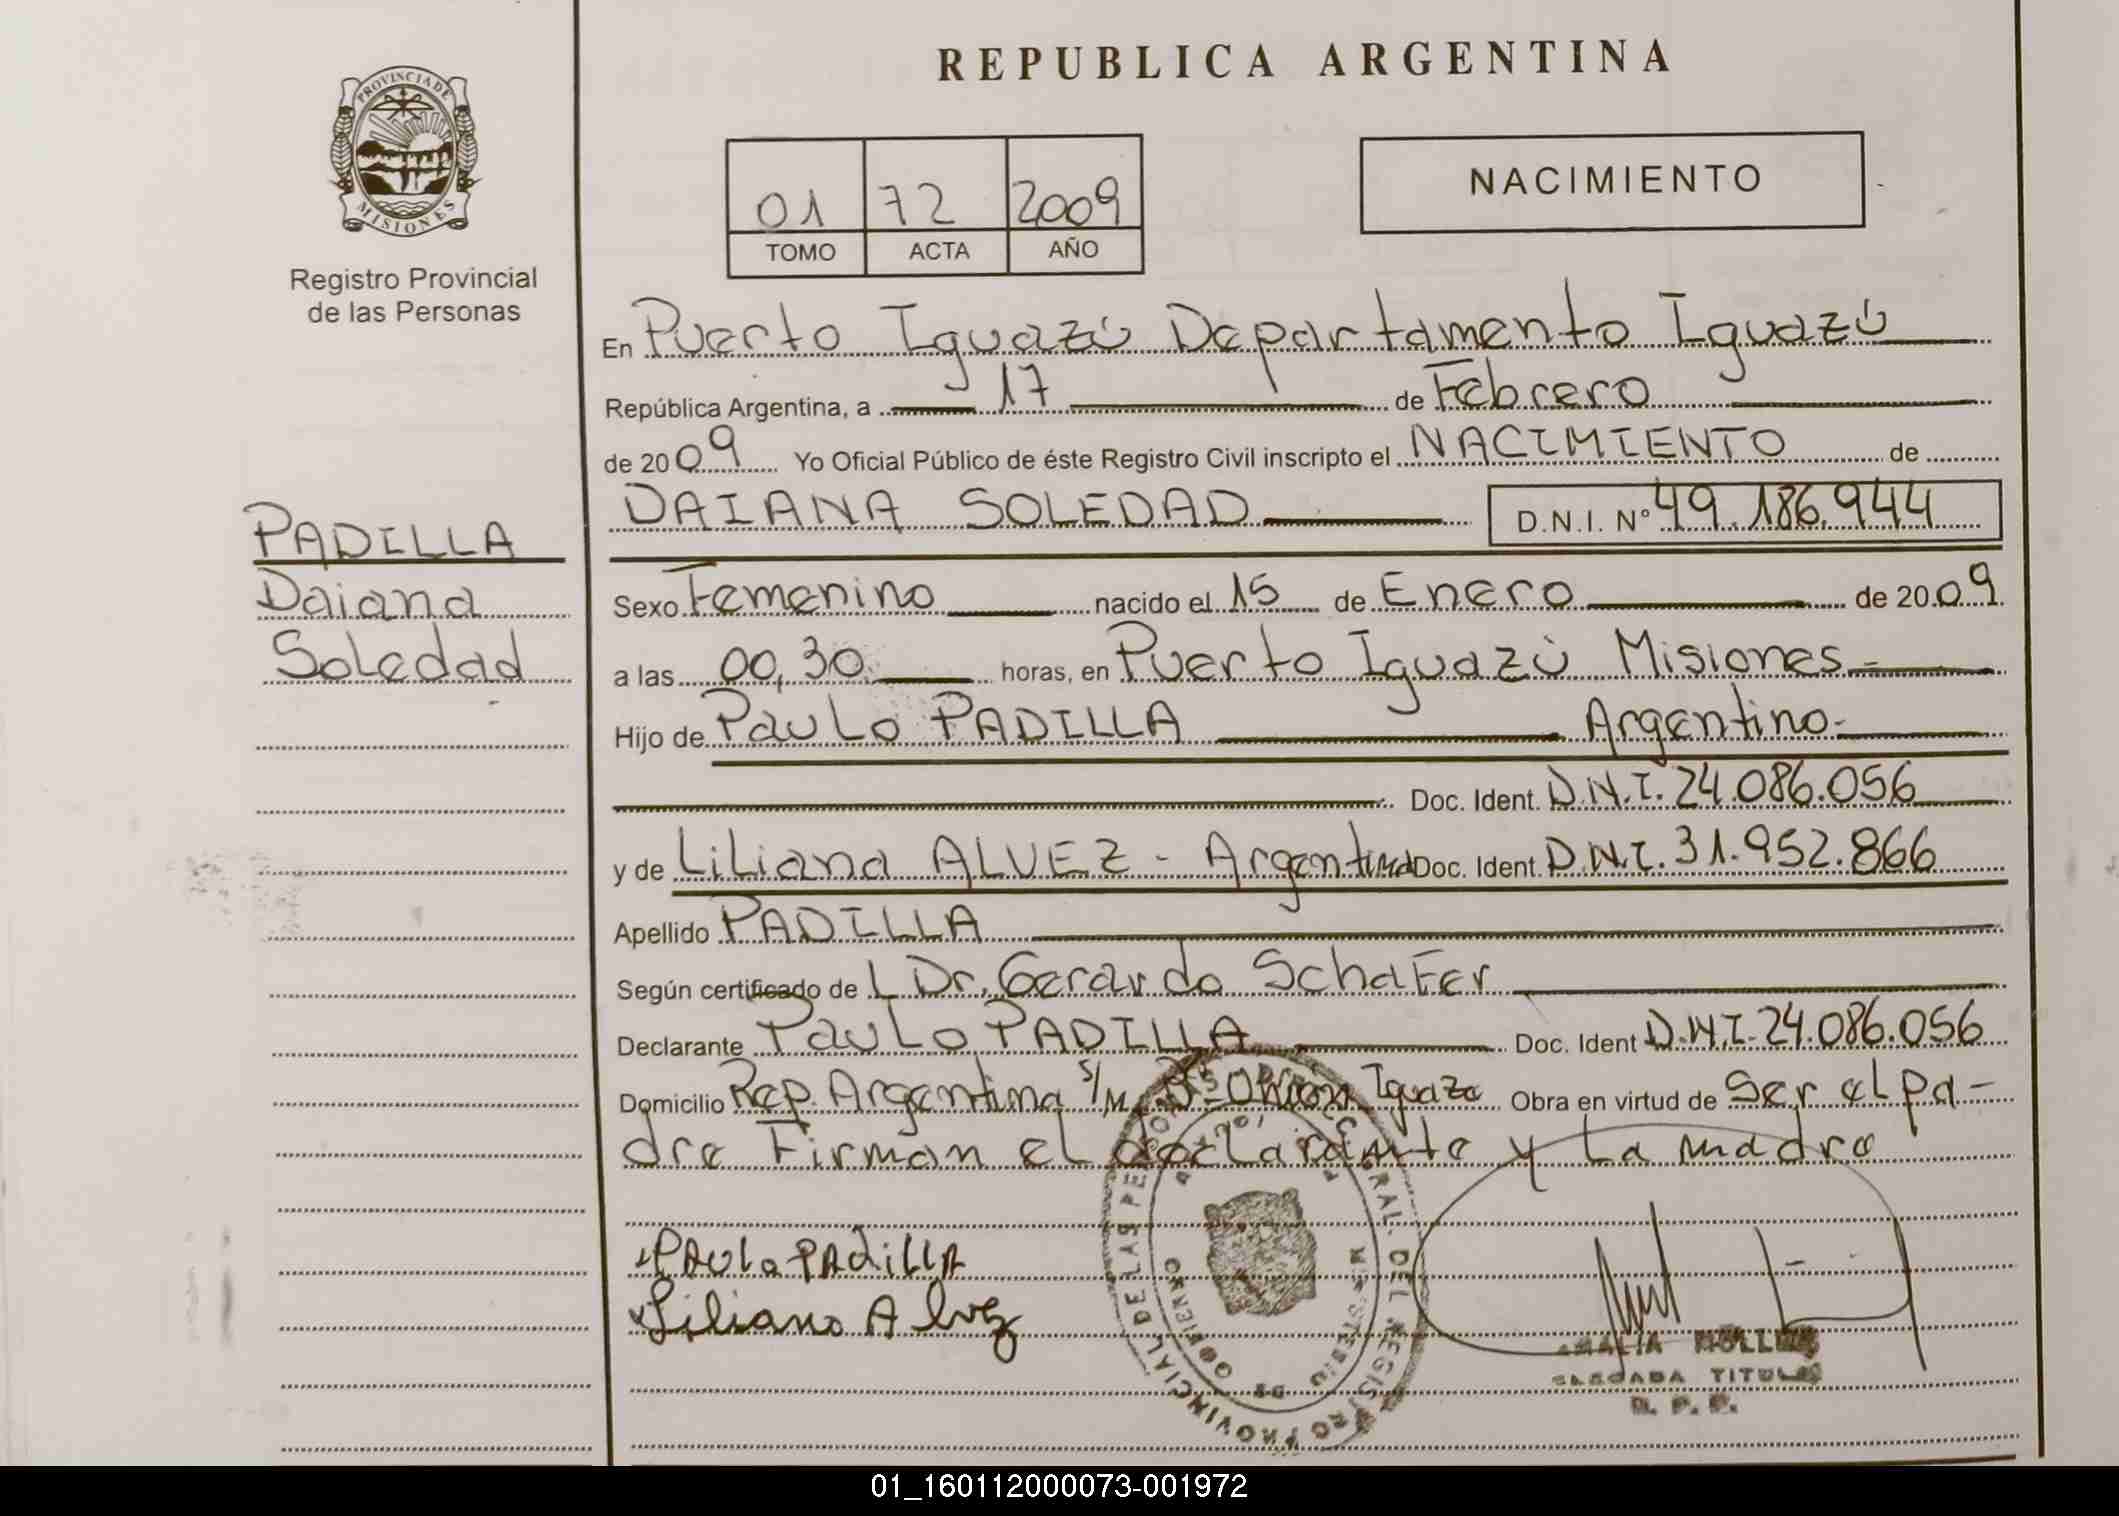 REPUBLICA ARGENTINA
PROVINCIA DE
MISIONES
Registro Provincial
de las Personas
01 72 2009
TOMO ACTA AÑO
NACIMIENTO
En Puerto Iguazú Departamento Iguazú
República Argentina, a 17 de Febrero
de 2009 Yo Oficial Público de éste Registro Civil inscripto el NACIMIENTO de
DAIANA SOLEDAD D.N.I. Nº 49.186.944
PADILLA
Daiana
Soledad
Sexo Femenino nacido el 15 de Enero de 2009
a las 00,30 horas, en Puerto Iguazú Misiones.-
Hijo de Paulo PADILLA Argentino-
Doc. Ident. D.N.I. 24.086.056
y de Liliana ALVEZ - Argentina Doc. Ident. D.N.I. 31.952.866
Apellido PADILLA
Según certificado de L Dr. Gerardo Schafer
Declarante Paulo PADILLA Doc. Ident D.N.I. 24.086.056
Domicilio Rep. Argentina s/ Iguazú Obra en virtud de Ser el pa-
dre Firman el declarante y La madre
Paulo PAdiLLA
Liliana Alvez
REGISTRO PROVINCIAL DE LAS PE
RAL DEL
MINISTERIO DE GOBIERNO
TITULAR
R. P. P.
01_160112000073-001972